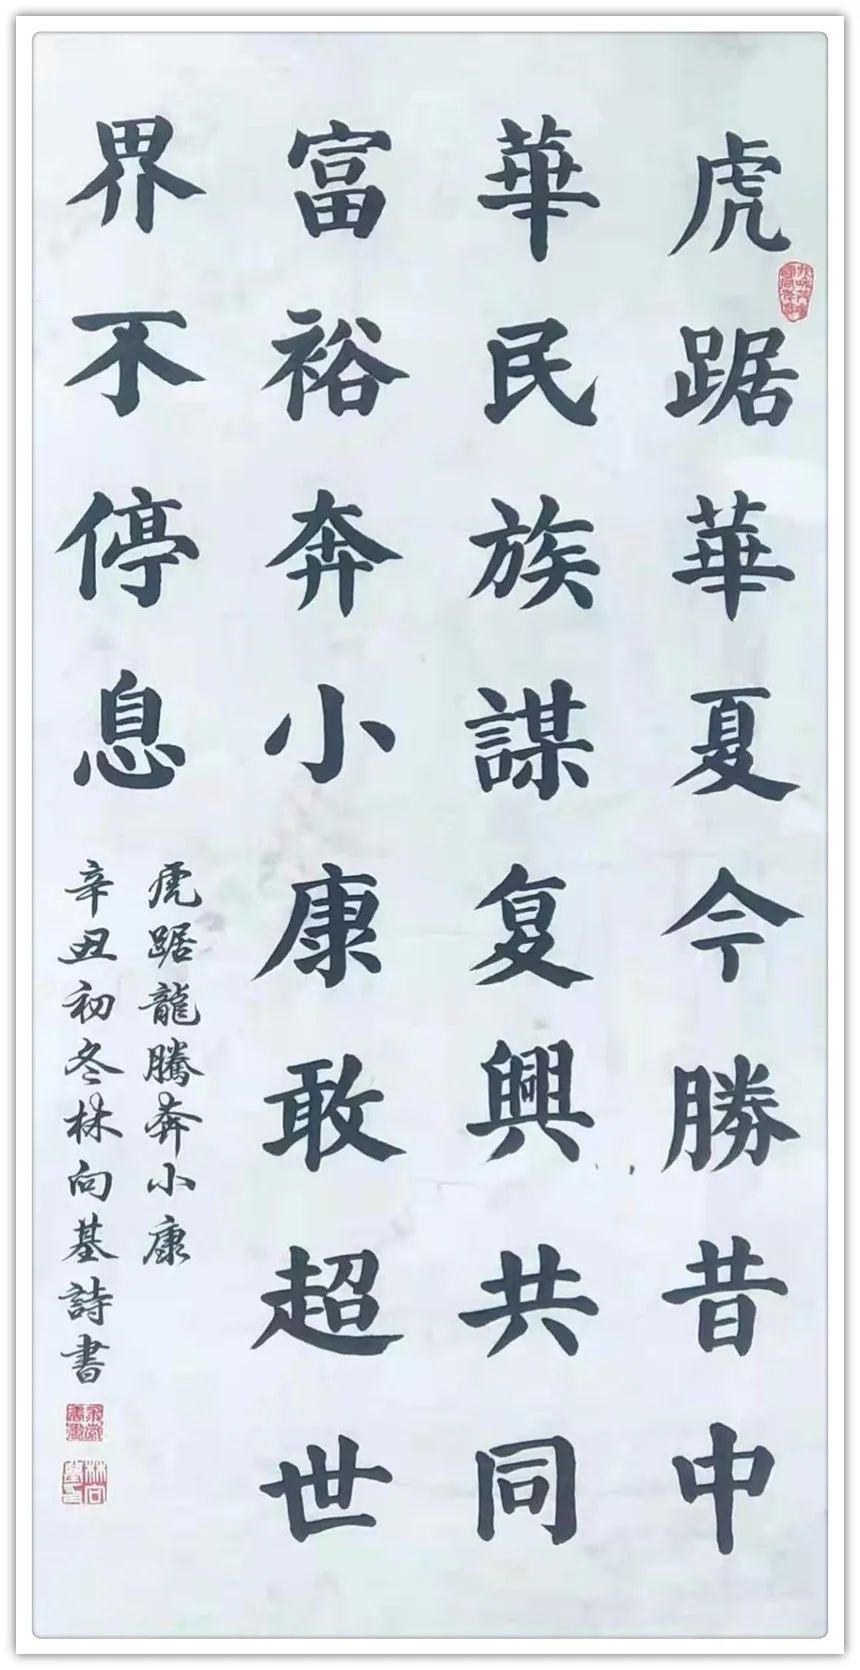 虎踞華夏今勝昔中
華民族謀复興共同
富裕奔小康敢超世
界不停息
虎踞龍騰奔小康
辛丑初冬林向基詩書